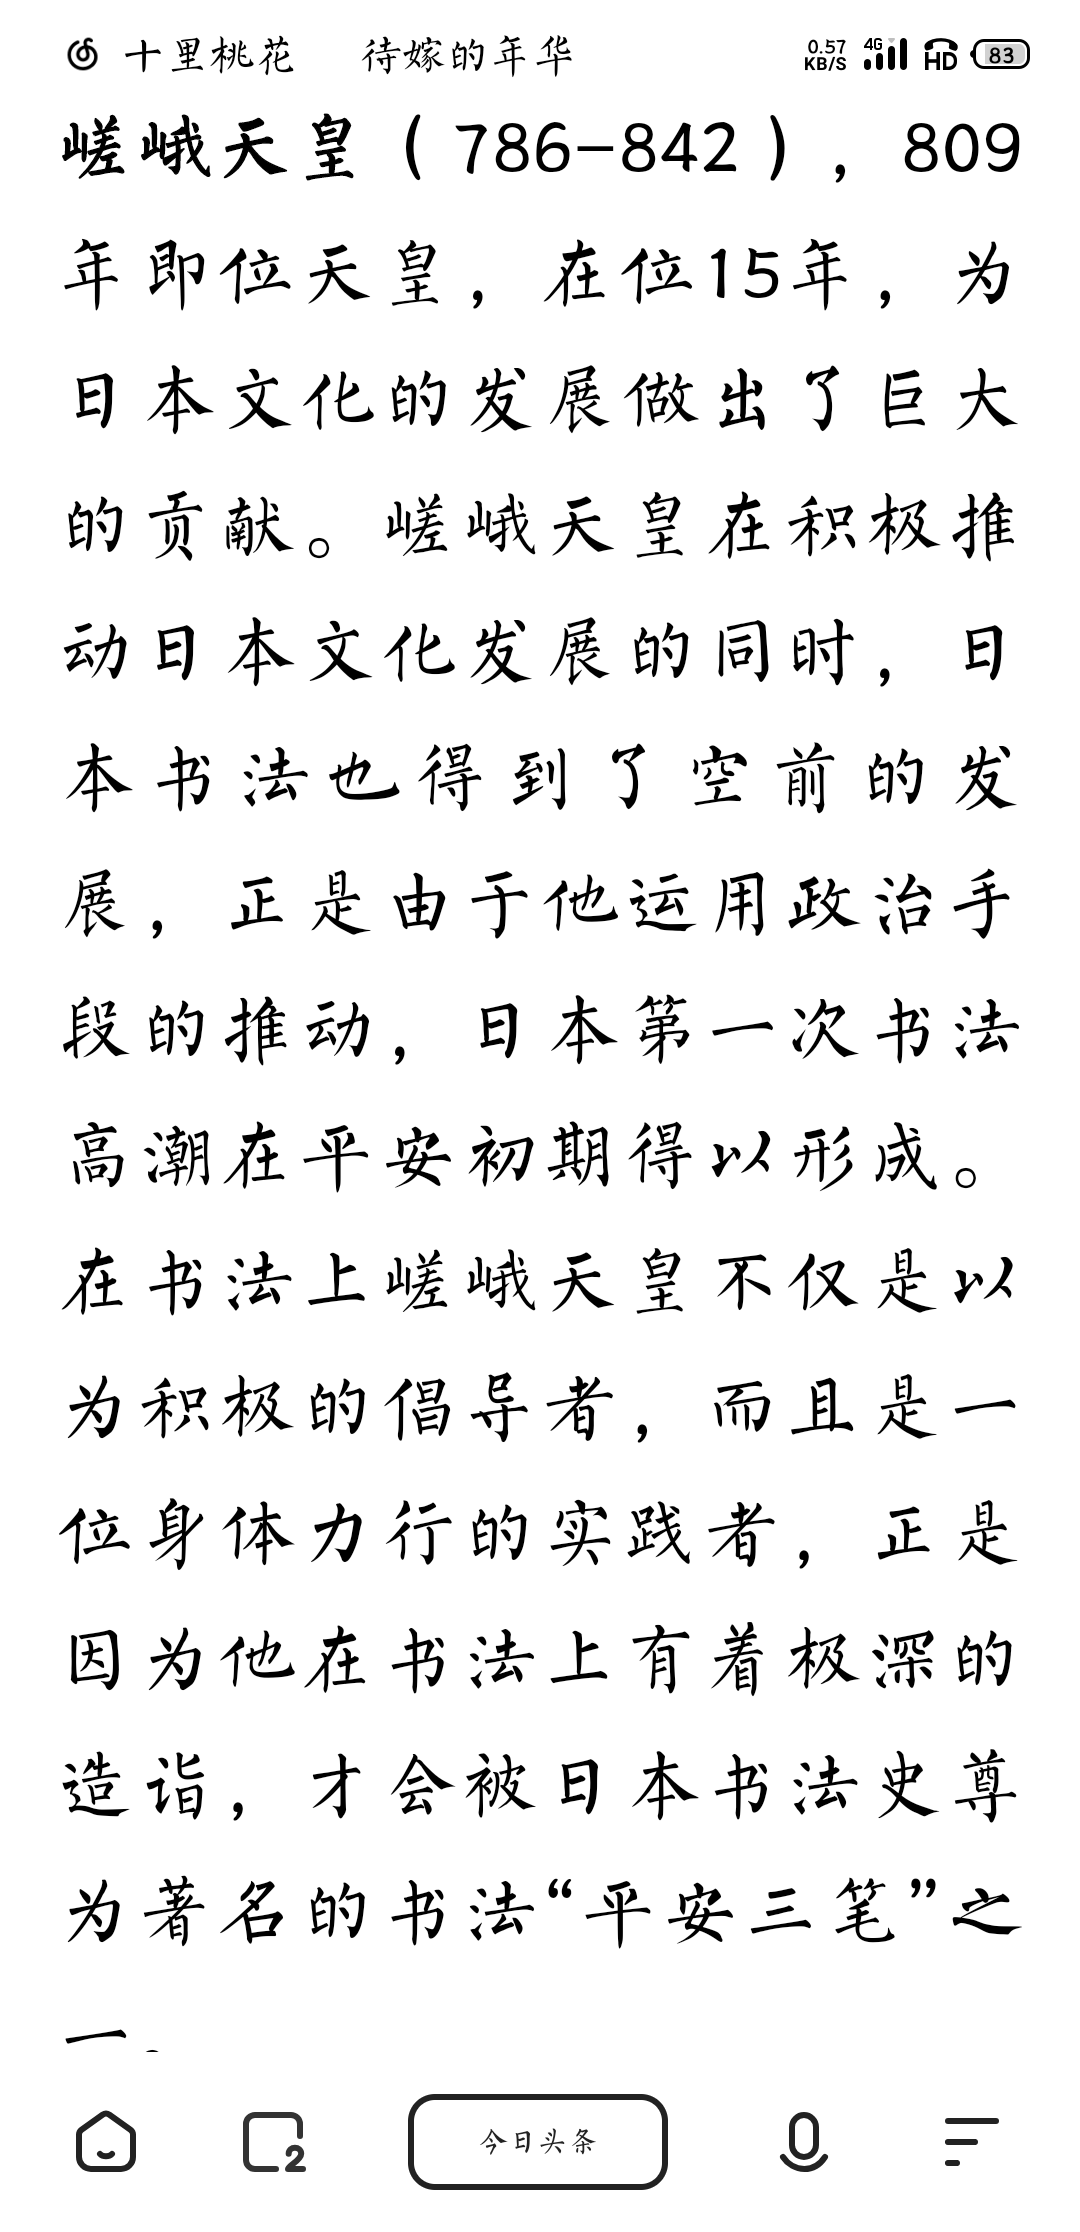 十里桃花 待嫁的年华 0.57 KB/S 4G HD 83
嵯峨天皇（786-842），809
年即位天皇，在位15年，为
日本文化的发展做出了巨大
的贡献。嵯峨天皇在积极推
动日本文化发展的同时，日
本书法也得到了空前的发
展，正是由于他运用政治手
段的推动，日本第一次书法
高潮在平安初期得以形成。
在书法上嵯峨天皇不仅是以
为积极的倡导者，而且是一
位身体力行的实践者，正是
因为他在书法上有着极深的
造诣，才会被日本书法史尊
为著名的书法“平安三笔”之
一。
2 今日头条